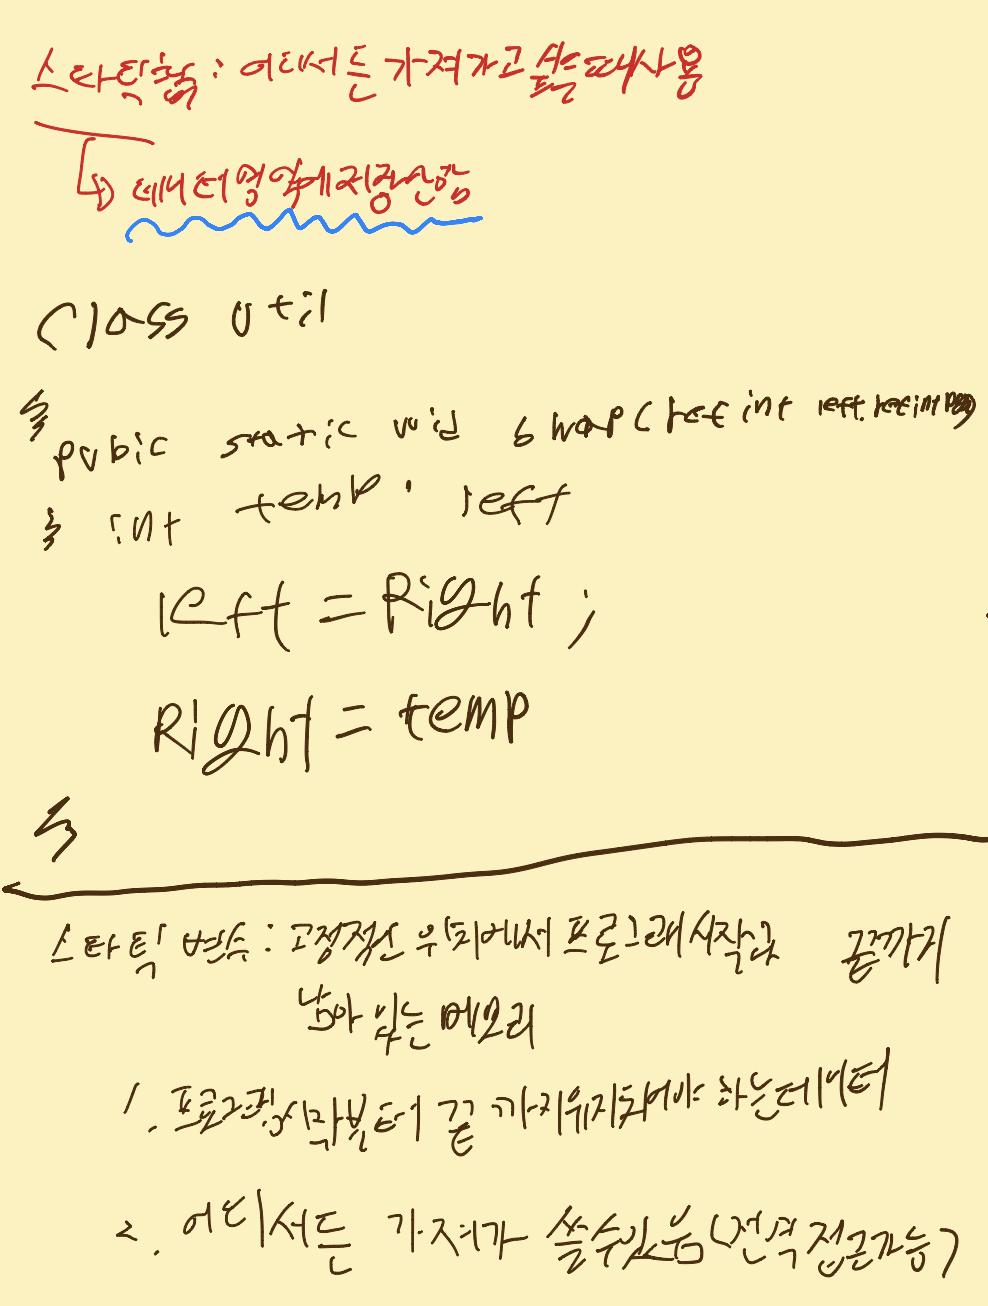 스타틱 : 어디서든 가져가고 싶을때 사용
데이터 영역에 저장
class util
{
pubic static void swap(ref int left, ref int
{ int temp = left
left = Right ;
Right = temp
}
스타틱 변수 : 고정적인 위치에서 프로그램 시작과 끝까지
남아 있는 메모리
1. 프로그램 시작부터 끝 까지 유지되어야 하는 데이터
2. 어디서든 가져가 쓸 수 있음 (전역 접근 가능)